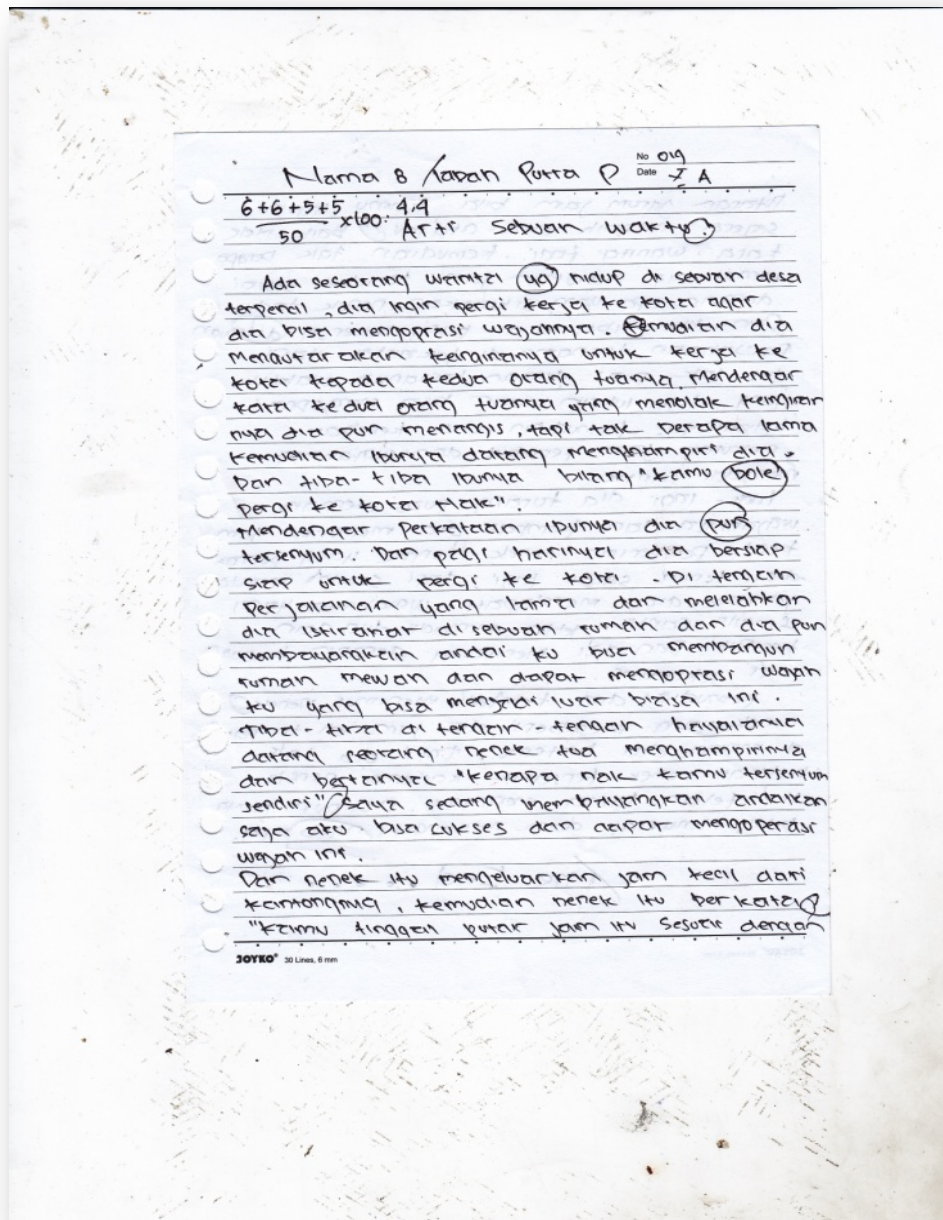 Nama : Taban Putra P No 019
Date 7 A
6+6+5+5 x100: 4,4
50
Arti Sebuah Waktu?
Ada seseorang wanita yg hidup di sebuah desa
terpencil, dia ingin pergi kerja ke kota agar
dia bisa mengoprasi wajahnya. Kemudian dia
Mengutarakan keinginanya untuk kerja ke
kota kepada kedua orang tuanya. Mendengar
kata kedua orang tuanya yang menolak keingina
nya dia pun menangis, tapi tak berapa lama
kemudian Ibunya datang menghampiri dia.
Dan tiba-tiba Ibunya bilang "kamu bole
pergi ke kota Nak".
Mendengar Perkataan Ibunya dia pun
tersenyum. Dan pagi harinya dia bersiap
siap untuk pergi ke kota. Di tengah
Perjalanan yang lama dan melelahkan
dia istirahat di sebuah rumah dan dia pun
membayangkan andai ku bisa membangun
rumah mewah dan dapat mengoprasi wajah
ku yang bisa menjadi luar biasa ini.
Tiba-tiba di tengah-tengah hayalannya
datang seorang nenek tua menghampirinya
dan bertanya "kenapa nak kamu tersenyum
sendiri" Saya sedang membayangkan andaikan
saya aku bisa sukses dan dapat mengoperasi
wajah ini.
Dan nenek itu mengeluarkan jam kecil dari
kantongnya, kemudian nenek itu berkata,
"kamu tinggal putar jam itu sesuai dengan
JOYKO 30 Lines, 6 mm